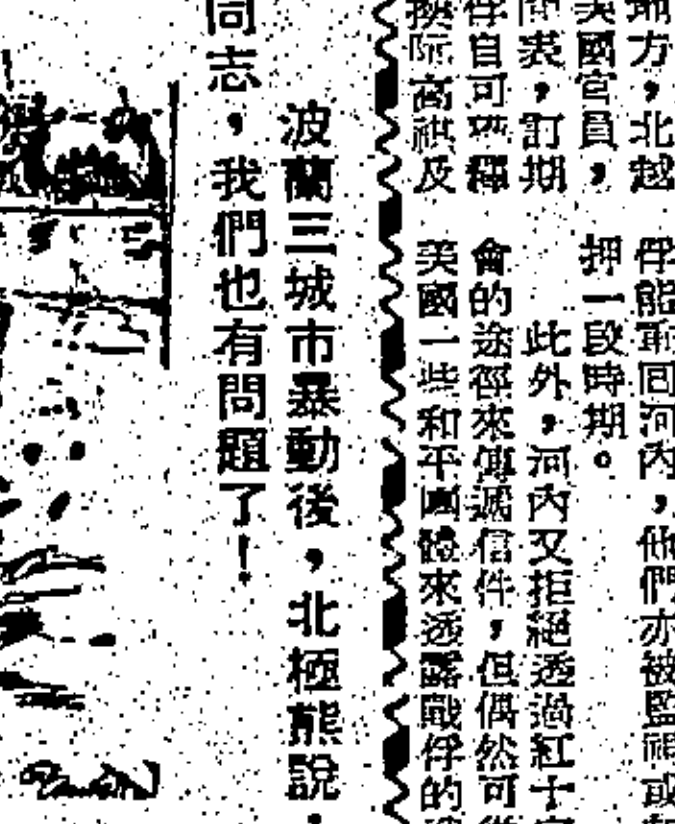 地方，北越
美國官員，
表，訂期
俘自可 釋
換阮高祺及
俘能重回河內，他們亦被監視或
押一段時期。
此外，河內又拒絕透過紅十字
會的途徑來傳遞信件，但偶然可從
美國一些和平團體來透露戰俘的
波蘭三城市暴動後，北極熊說：
同志，我們也有問題了！